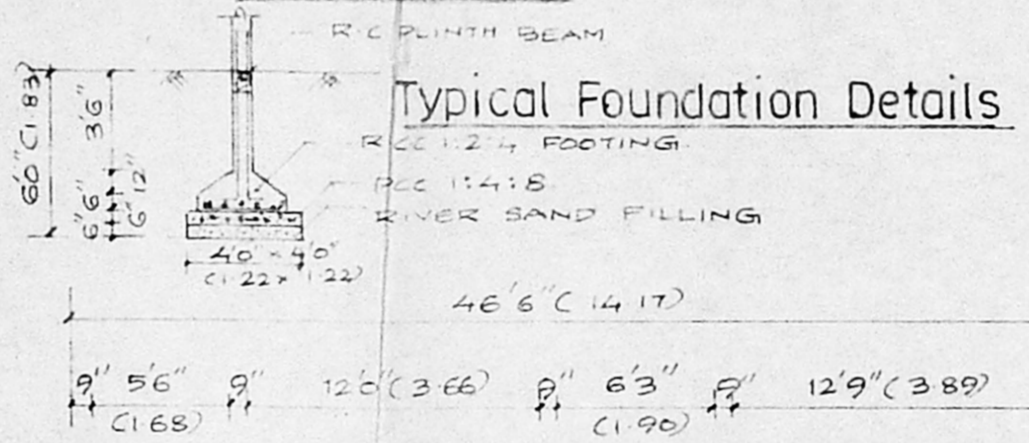 R.C PLINTH BEAM
Typical Foundation Details
R.CC 1:2:4 FOOTING.
PCC 1:4:8
RIVER SAND FILLING
6'0" (1.83)
3'6"
6" 6" 12"
6"
4'0" × 4'0"
(1.22 × 1.22)
46'6" (14.17)
9" 5'6" 9" 12'0" (3.66) 9" 6'3" 9" 12'9" (3.89)
(1.68) (1.90)